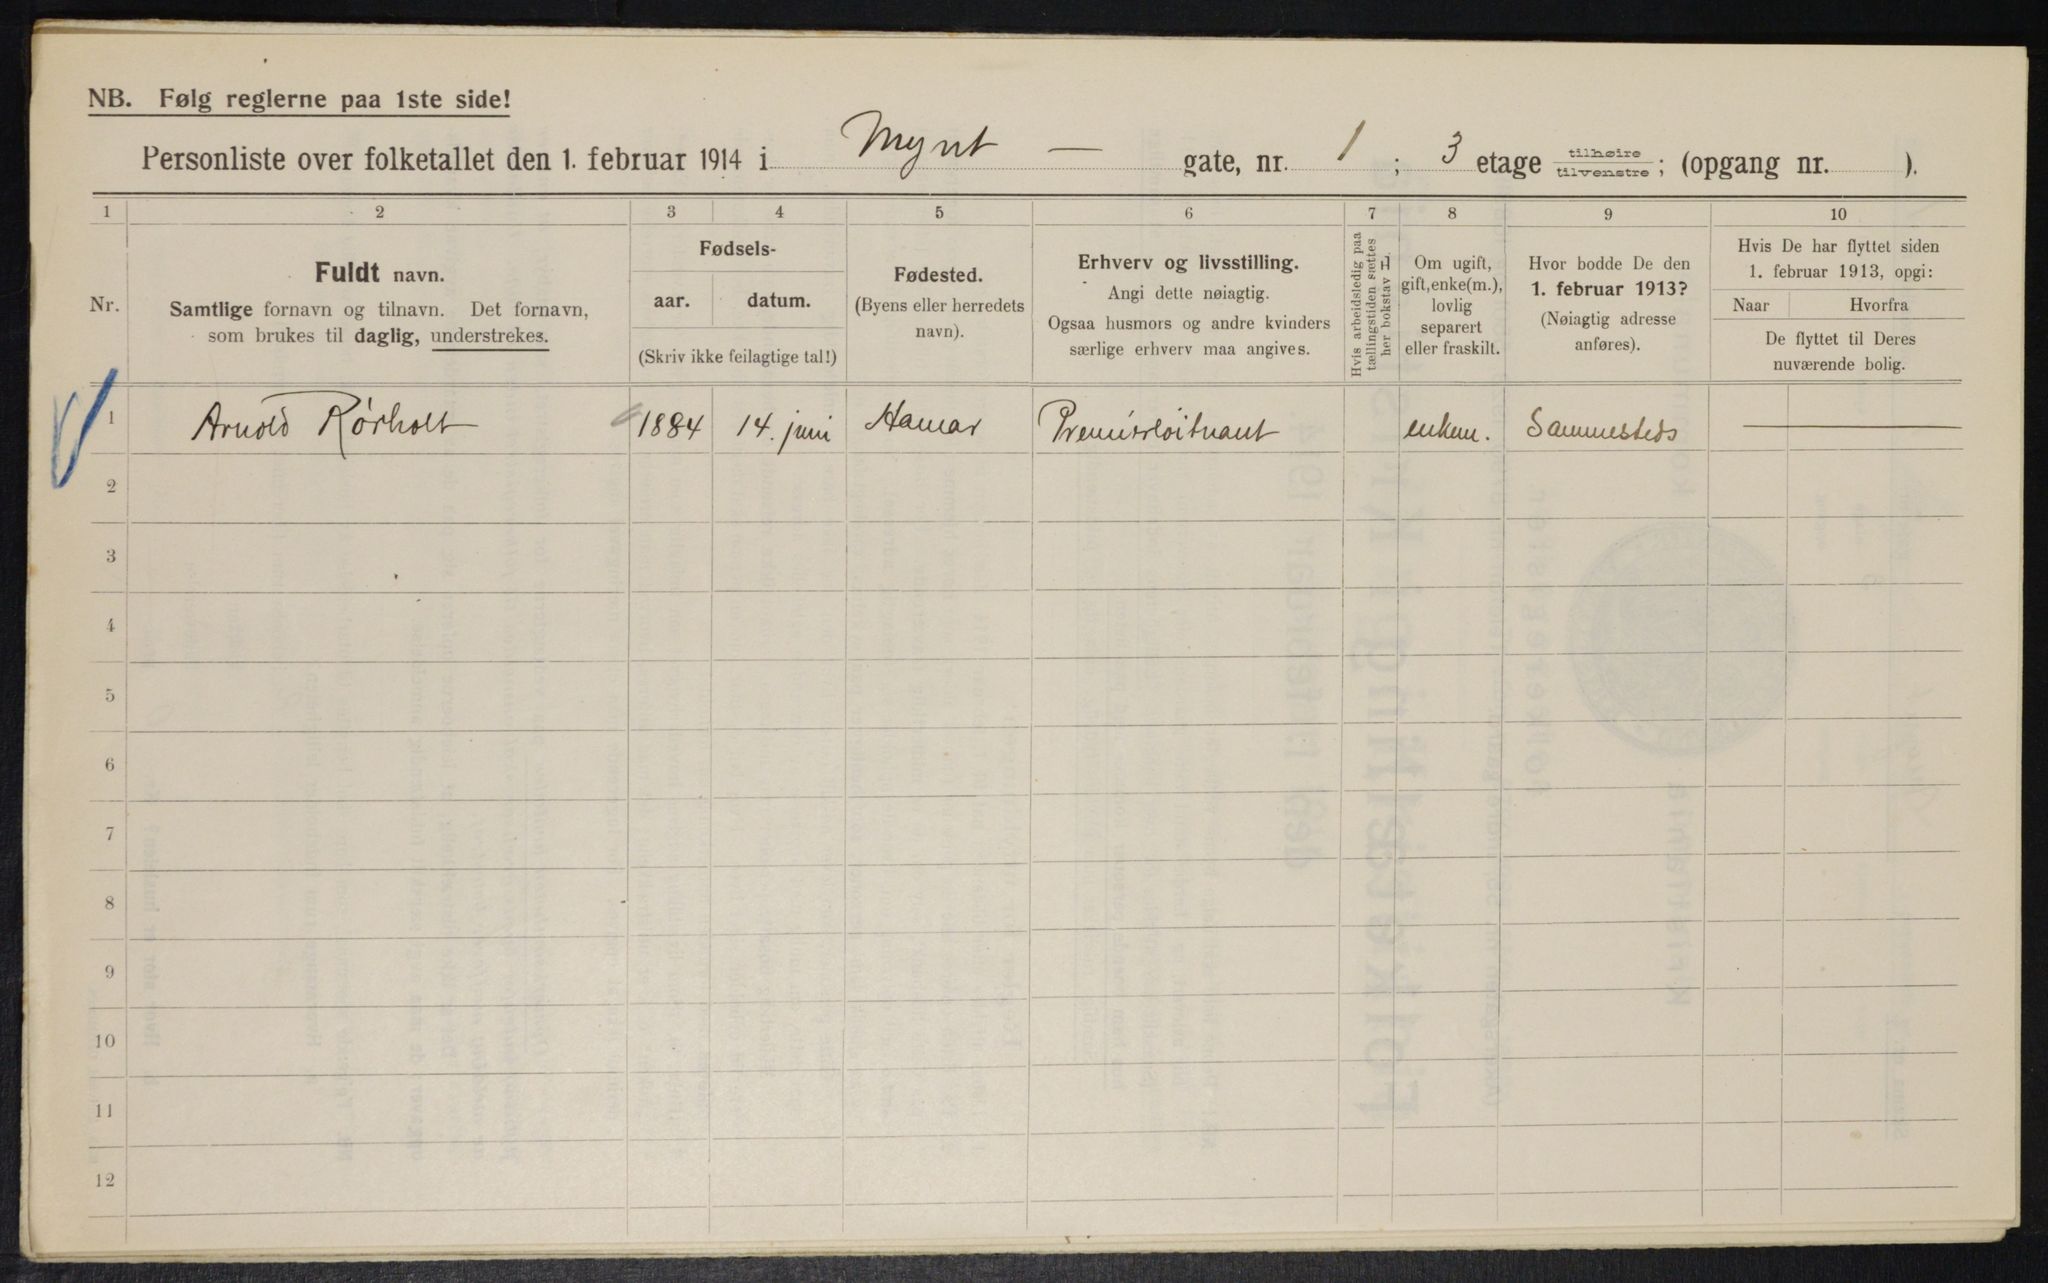 NB. Følg reglerne paa 1ste side!
Personliste over folketallet den 1. februar 1914 i Mynt — gate, nr. 1 ; 3 etage tilhøire/tilvenstre ; (opgang nr. ).
1 2 3 4 5 6 7 8 9 10
Nr.
Fuldt navn.
Samtlige fornavn og tilnavn. Det fornavn,
som brukes til daglig, understrekes.
Fødsels-
aar. datum.
(Skriv ikke feilagtige tal!)
Fødested.
(Byens eller herredets
navn).
Erhverv og livsstilling.
Angi dette nøiagtig.
Ogsaa husmors og andre kvinders
særlige erhverv maa angives.
Hvis arbeidsledig paa
tællingstiden sættes
her bokstav H
Om ugift,
gift, enke(m.),
lovlig
separert
eller fraskilt.
Hvor bodde De den
1. februar 1913?
(Nøiagtig adresse
anføres).
Hvis De har flyttet siden
1. februar 1913, opgi:
Naar Hvorfra
De flyttet til Deres
nuværende bolig.
1 Arnold Rørholt 1884 14. juni Hamar Premierløitnant enkem. Sammesteds —
2
3
4
5
6
7
8
9
10
11
12